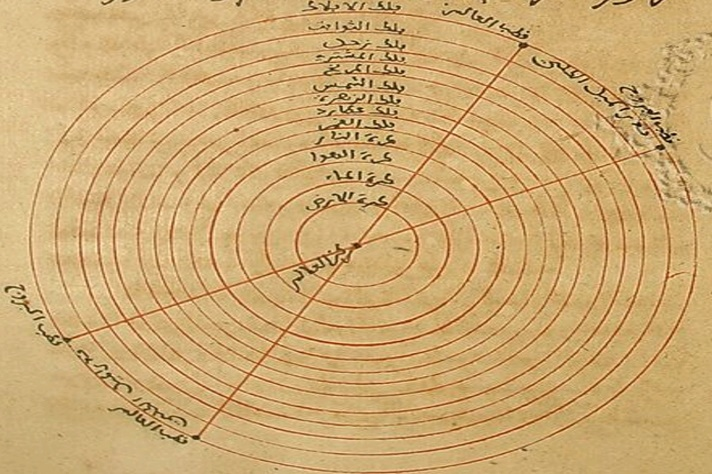 فلك الافلاك
فلك الثوابت
فلك زحل
فلك المشتري
فلك المريخ
فلك الشمس
فلك الزهره
فلك عطارد
فلك القمر
كرة النار
كرة الهوا
كرة الماء
كرة الارض
مركز العالم
قطب العالم
الميل الكلي
قطب البروج
قطب البروج
قطب العالم